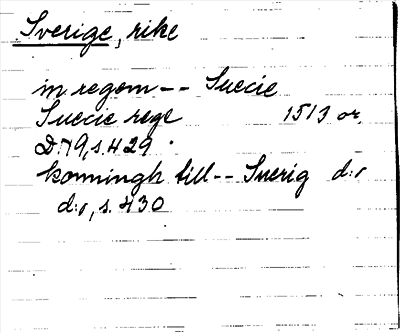 Sverige, rike
in regem -- Suecie
Suecie rege 1513 or.
D:79, s. 429.
konningh till -- Suerig d:o
d:o, s. 430